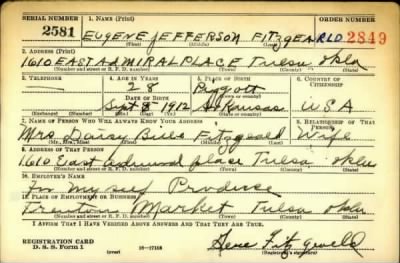 SERIAL NUMBER 1. NAME (Print) ORDER NUMBER
2581 EUGENE JEFFERSON FITZGEARLD 2849
(First) (Middle) (Last)
2. ADDRESS (Print)
1610 EAST ADMIRAL PLACE Tulsa Okla
(Number and street or R. F. D. number) (Town) (County) (State)
3. TELEPHONE 4. AGE IN YEARS 5. PLACE OF BIRTH 6. COUNTRY OF CITIZENSHIP
28 Piggott
DATE OF BIRTH
Sept 8 1912 Arkansas USA
(Exchange) (Number) (Mo.) (Day) (Yr.) (State or country)
7. NAME OF PERSON WHO WILL ALWAYS KNOW YOUR ADDRESS 8. RELATIONSHIP OF THAT PERSON
Mrs Daisy Fitzgeald Wife
(Mr., Mrs., Miss) (First) (Middle) (Last)
9. ADDRESS OF THAT PERSON
1610 East admiral place Tulsa Okla
(Number and street or R. F. D. number) (Town) (County) (State)
10. EMPLOYER'S NAME
For myself Produce
11. PLACE OF EMPLOYMENT OR BUSINESS
Market Tulsa Okla
(Number and street or R. F. D. number) (Town) (County) (State)
I AFFIRM THAT I HAVE VERIFIED ABOVE ANSWERS AND THAT THEY ARE TRUE.
REGISTRATION CARD
D. S. S. Form 1
(over) 16-17105 Gene
(Registrant's signature)